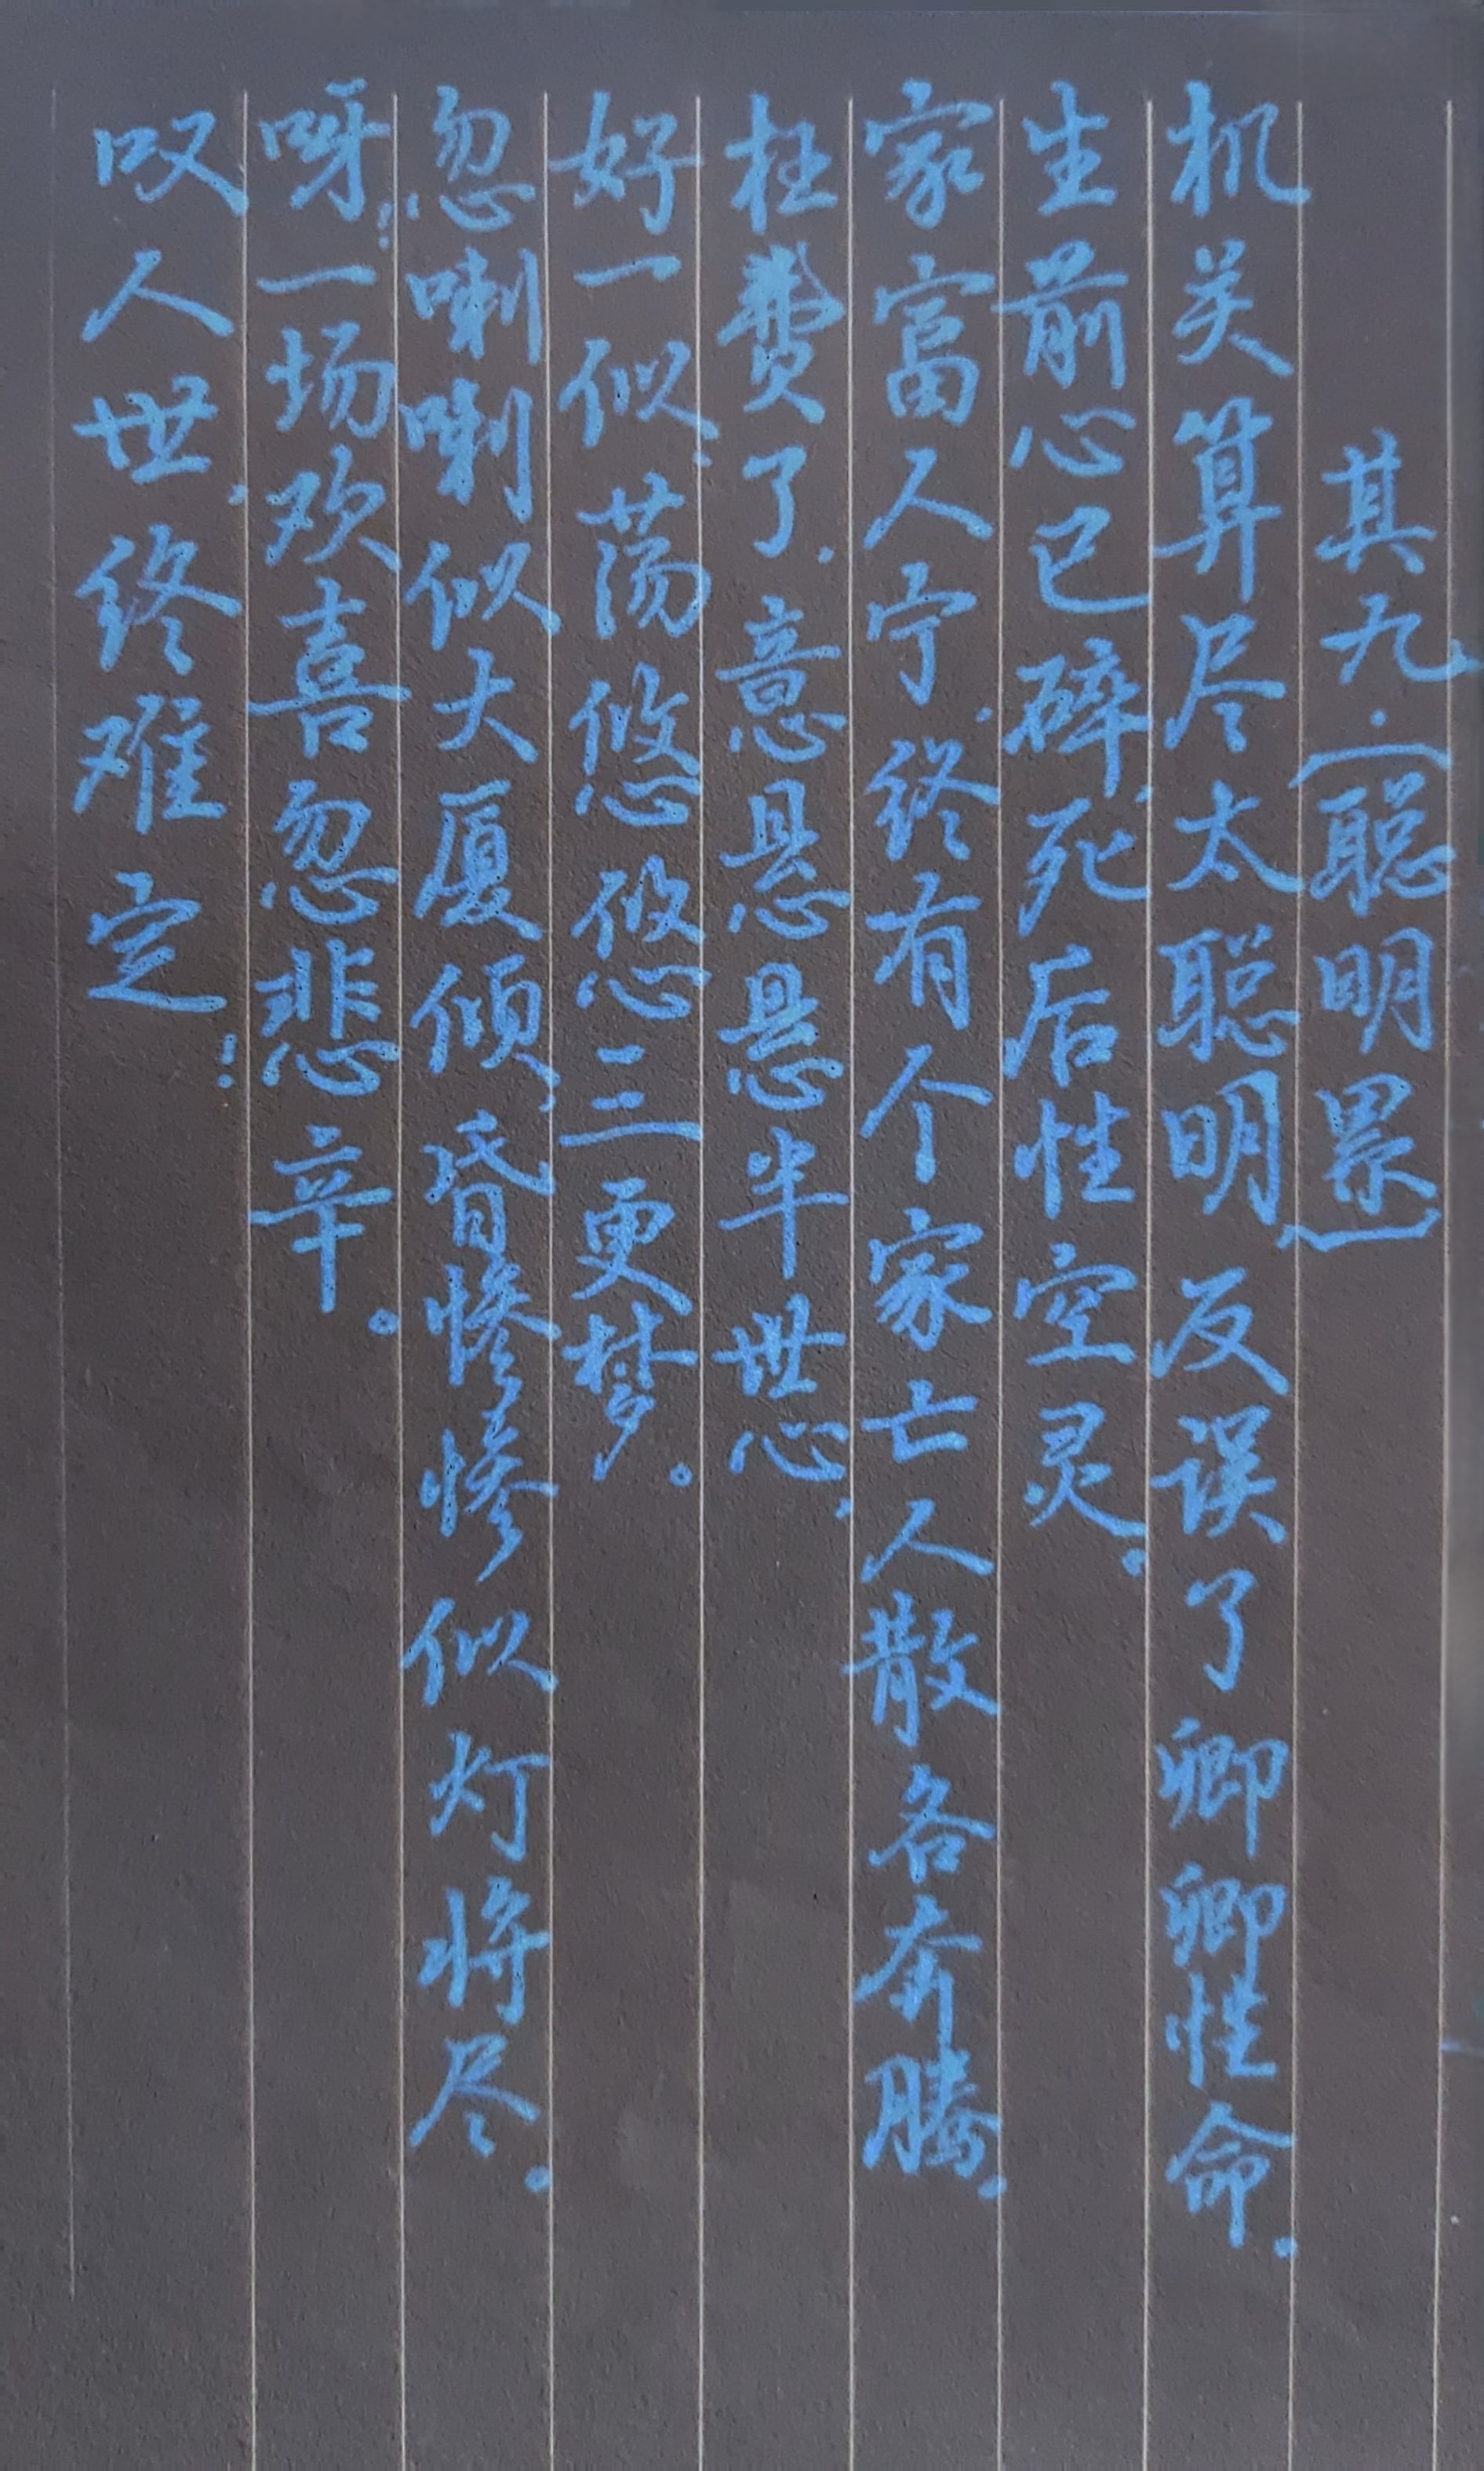 其九·〔聪明累〕
机关算尽太聪明,反误了卿卿性命。
生前心已碎,死后性空灵。
家富人宁,终有个家亡人散各奔腾。
枉费了,意悬悬半世心,
好一似,荡悠悠三更梦。
忽喇喇似大厦倾,昏惨惨似灯将尽。
呀!一场欢喜忽悲辛。
叹人世,终难定!